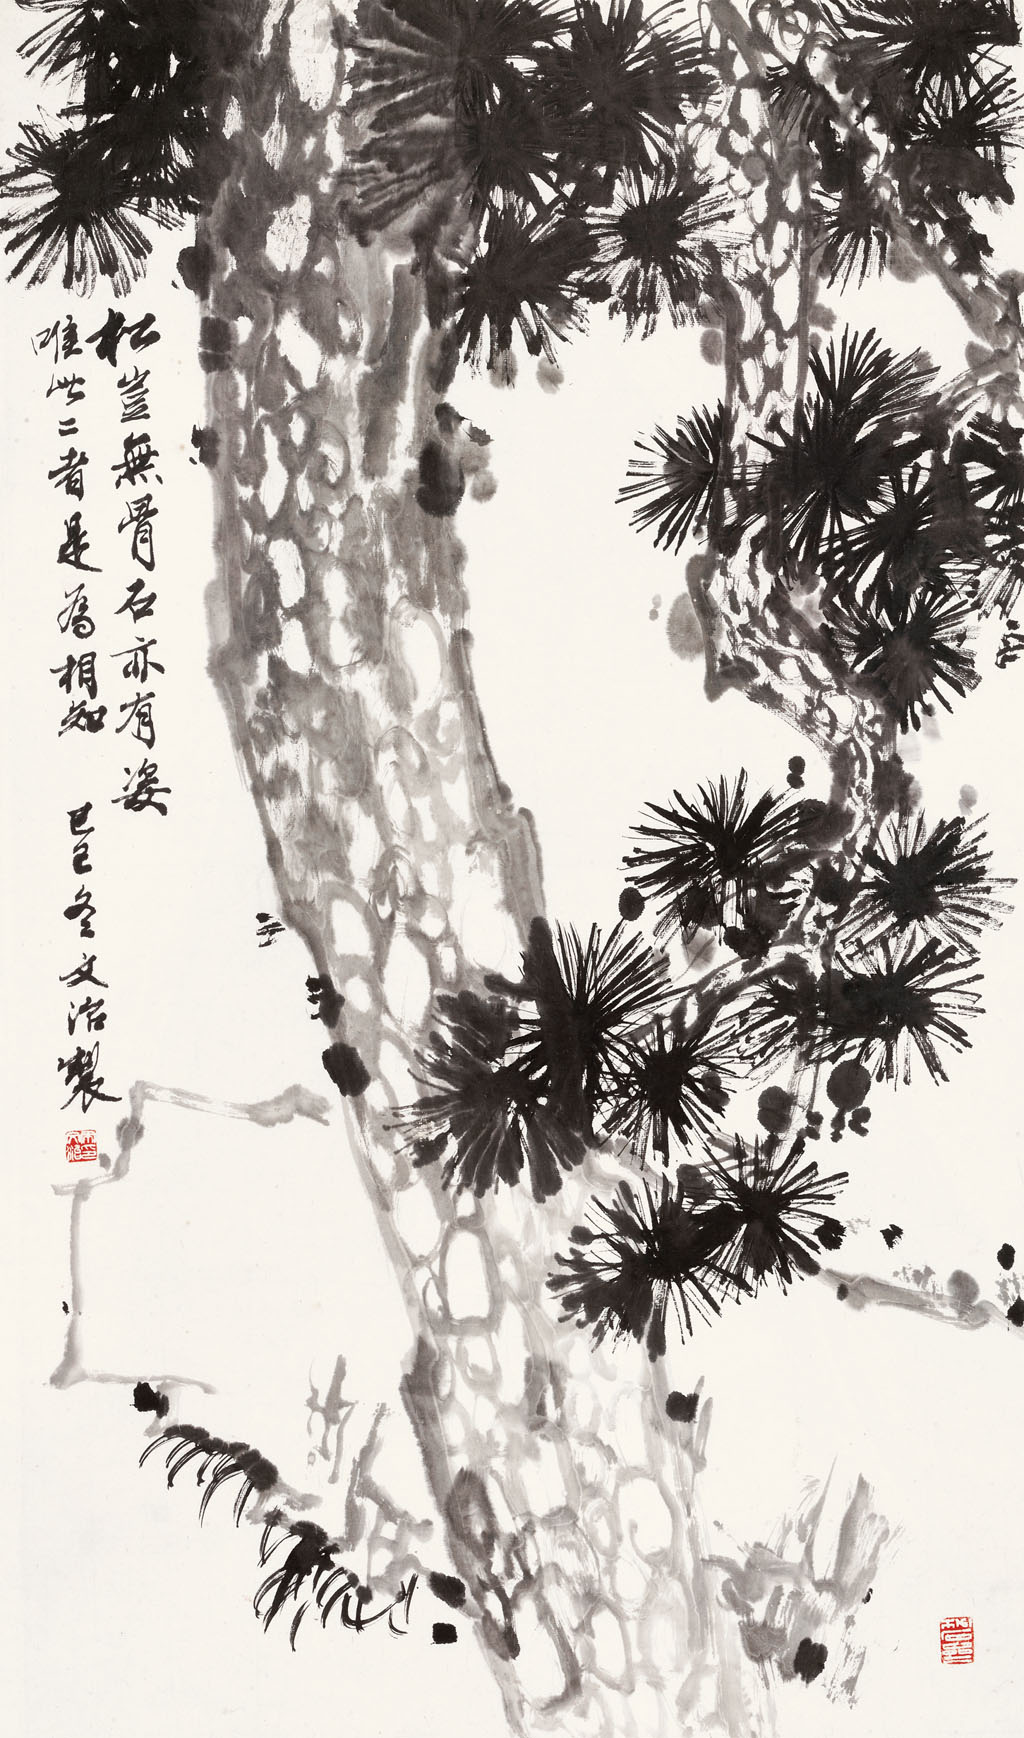 松豈無骨石亦有姿
唯此二者是為相知 己巳冬文治製